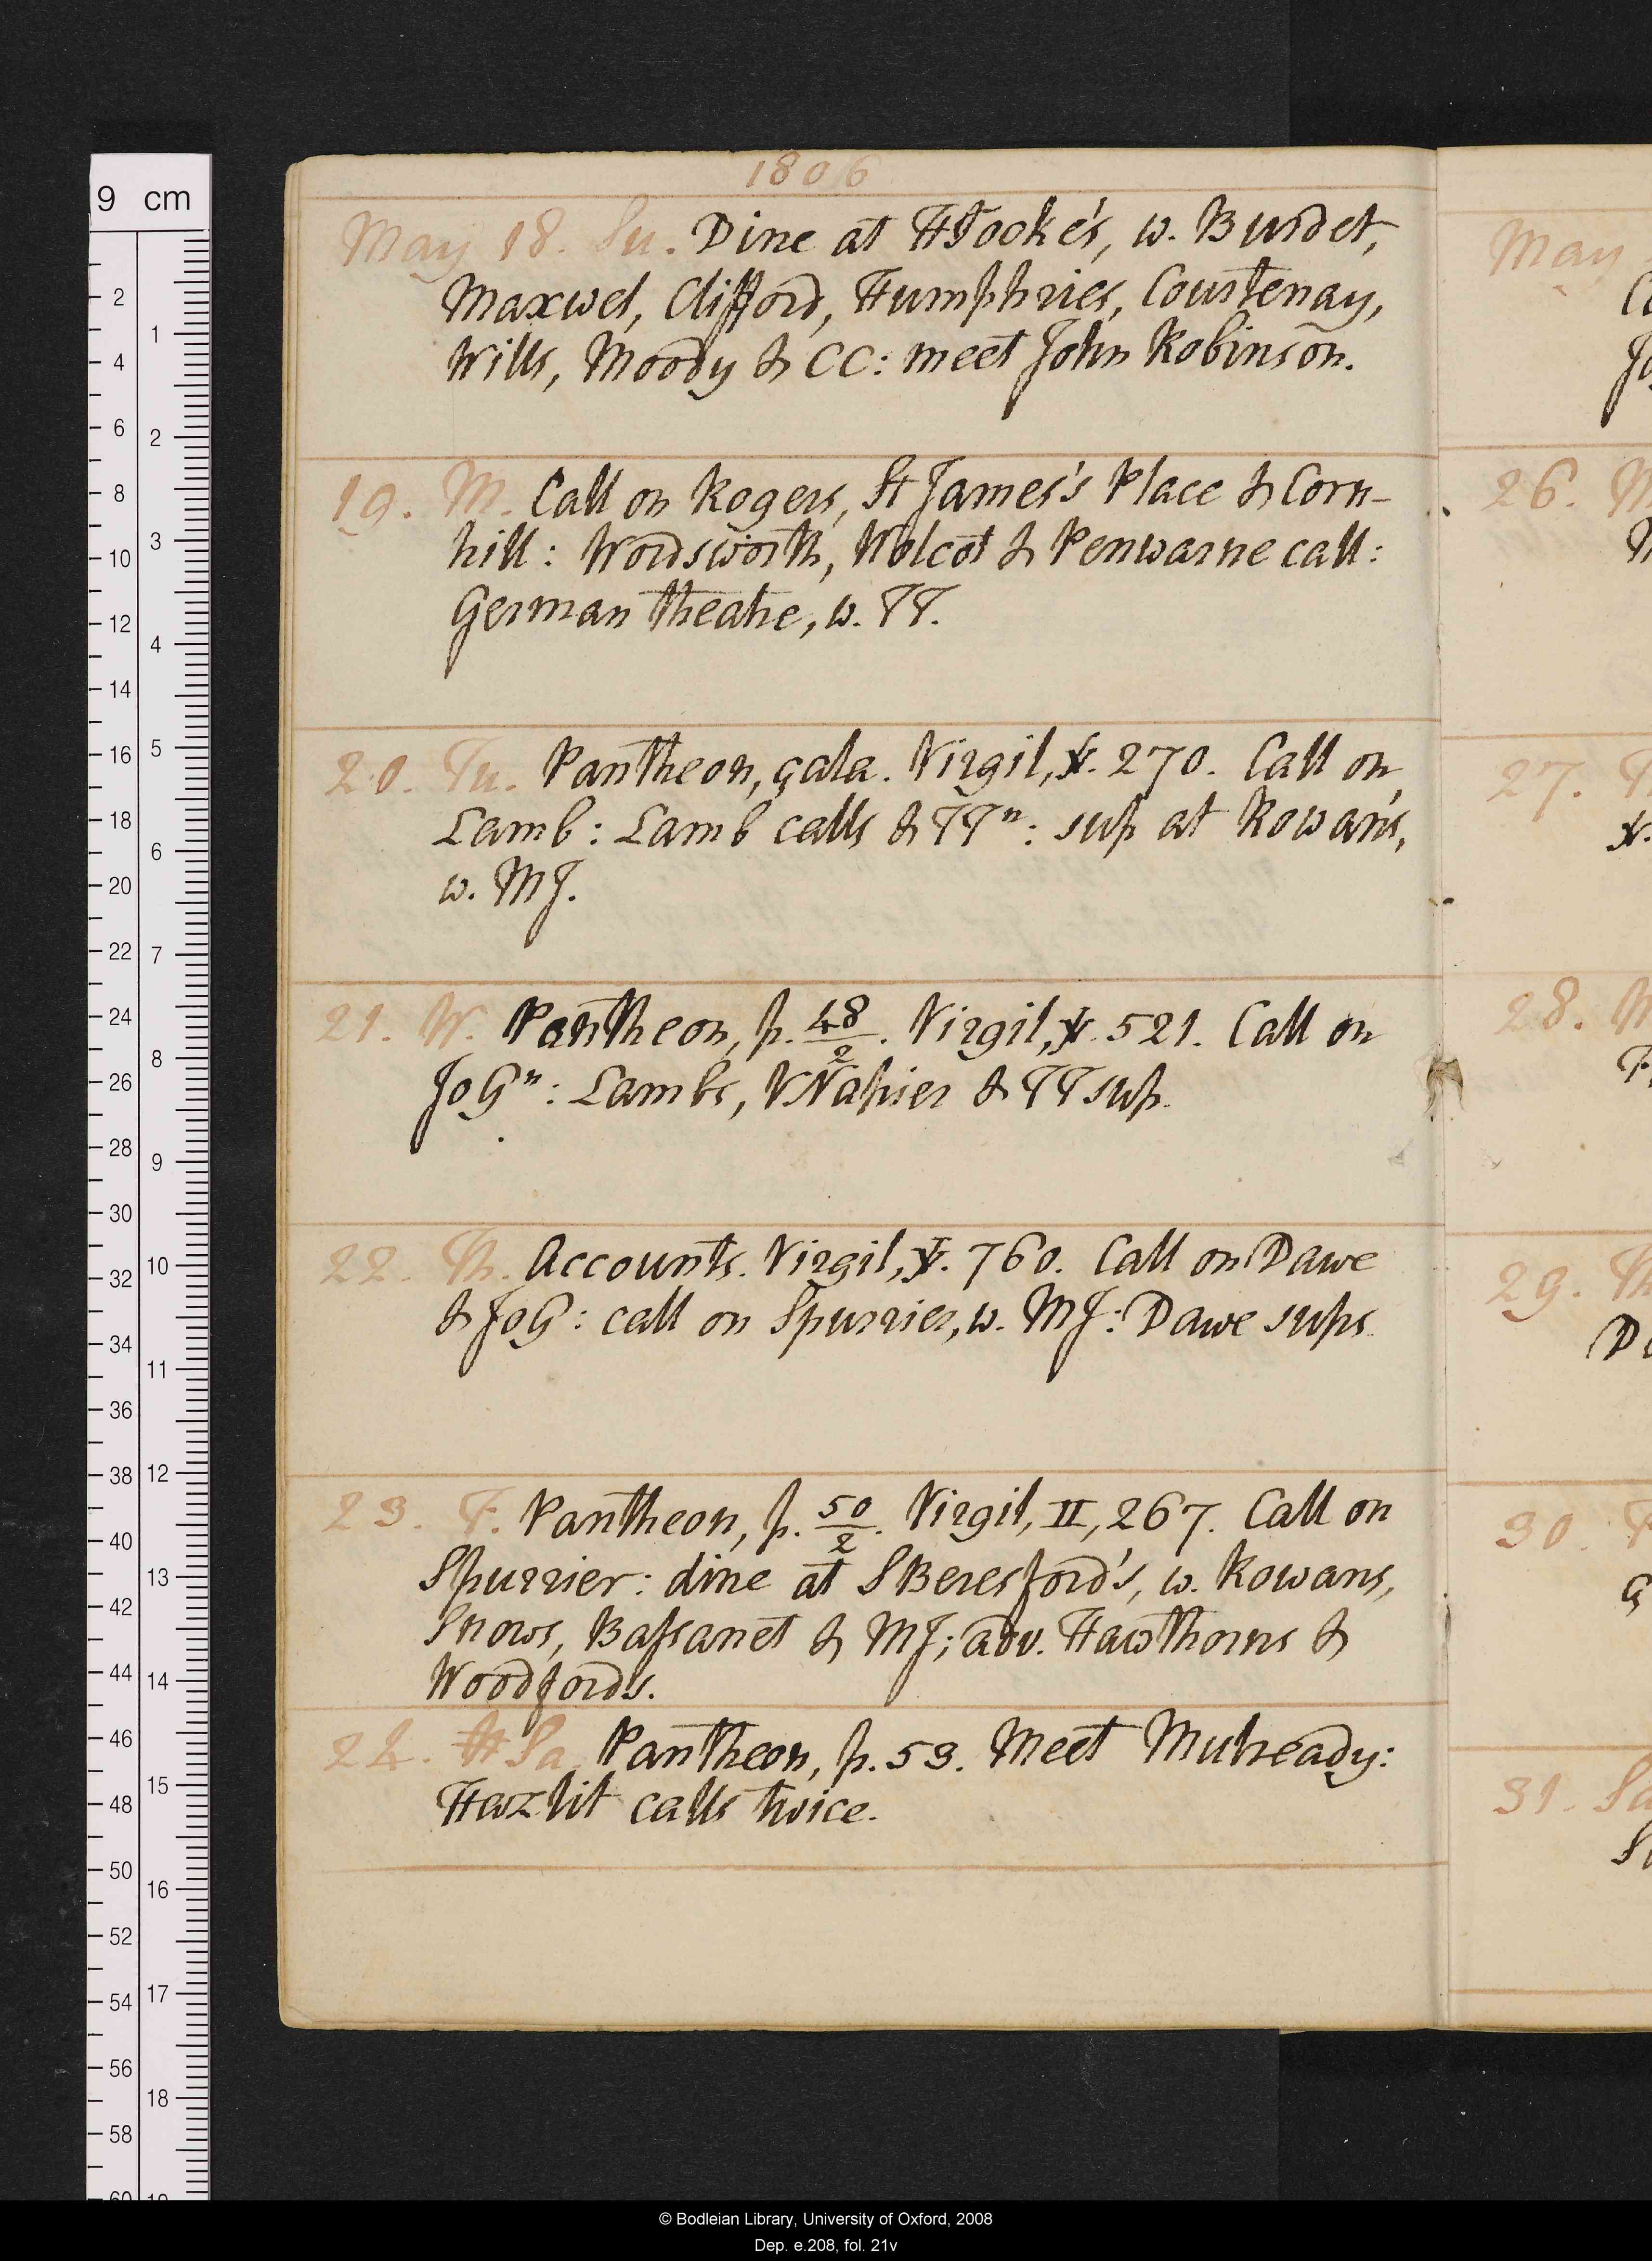 1806
May 18. Su. Dine at HTooke's, w. Burdet,
Maxwel, Clifford, Humphries, Courtenay,
Wills, Moody & CC: meet John Robinson.
19. M. Call on Rogers, St James's Place & Corn-
hill: Wordsworth, Wolcot & Penwarne call:
German theatre, w. TT.
20. Tu. Pantheon, çala. Virgil, v. 270. Call on
Lamb: Lamb calls & TTn: sup at Rowan's,
w. MJ.
21. W. Pantheon, p. 48/2. Virgil, v. 521. Call on
JoGn: Lambs, VNapier & TT sup.
22. Th. Accounts. Virgil, v. 760. Call on Dawe
& JoG: call on Spurrier, w. MJ: Dawe sups.
23. F. Pantheon, p. 50/2. Virgil, II, 267. Call on
Spurrier: dine at SBeresford's, w. Rowans,
Snows, Baſsanet & MJ; adv. Hawthorns &
Woodfords.
24. Sa. Pantheon, p. 53. Meet Mulready:
Hazlit calls twice.
May
26. M
27. T
28. W
29. Th
30. F
31. Sa
9 cm
2
4
6
8
10
12
14
16
18
20
22
24
26
28
30
32
34
36
38
40
42
44
46
48
50
52
54
56
58
1
2
3
4
5
6
7
8
9
10
11
12
13
14
15
16
17
18
© Bodleian Library, University of Oxford, 2008
Dep. e.208, fol. 21v